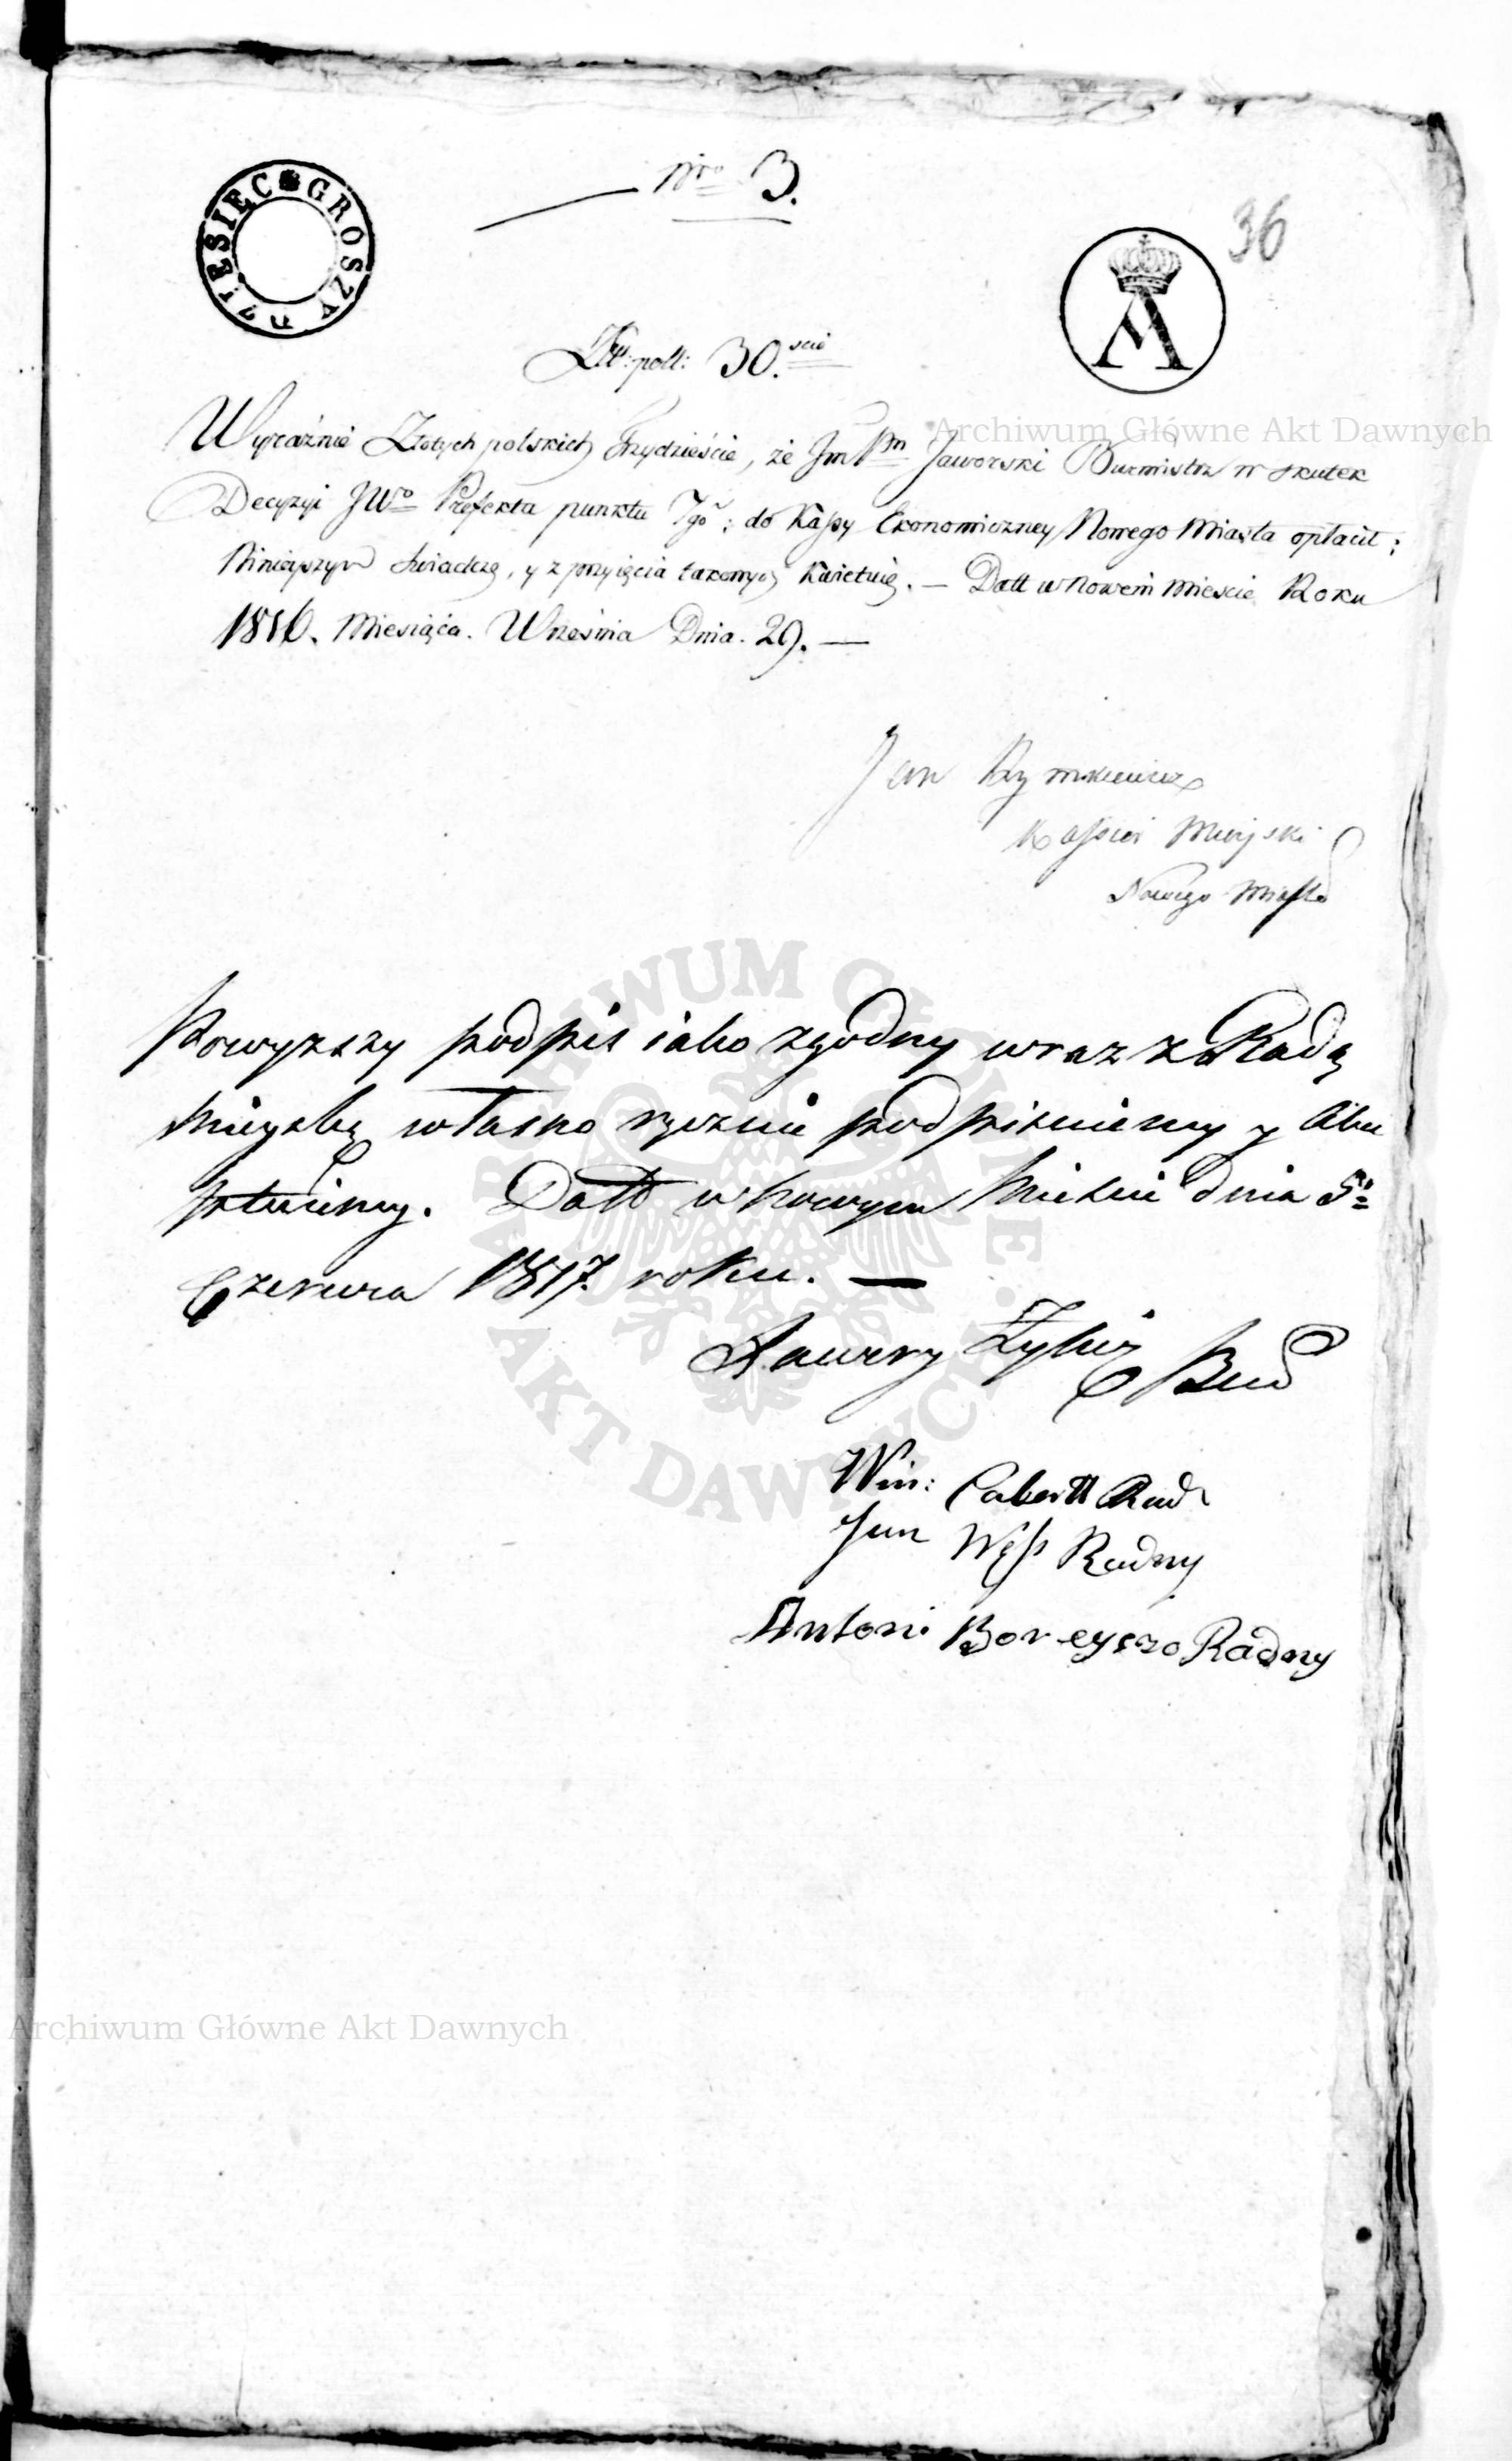 Nro 3.
DZIESIĘC GROSZY
36
A
Złt: poll: 30.scie
Wyraźnie Złotych polskich Trzydzieście, że Jm Pan Jaworski Burmistrz w skutek
Decyzyi JWo Prefekta punktu 7go; do Kassy Ekonomiczney Nowego Miasta opłacił;
Ninieyszym świadczę, y z przyięcia takowych Kwietuię. — Datt w Nowem Mieście Roku
1816. Miesiąca. Września Dnia. 29. —
Jan Rymkiewicz
Kassier Mieyski
Nowego Miasta
Powyższy podpis iako zgodny wraz z Radą
Mieyską własno ręcznie podpisuiemy y
Datt w Nowym Mieście dnia 5o
Czerwca 1817 roku. —
Ławrzy
Win: Rad
Jan Węss Radny
Antoni Boreyszo Radny
Archiwum Główne Akt Dawnych
ARCHIWUM GŁÓWNE AKT DAWNYCH
Archiwum Główne Akt Dawnych